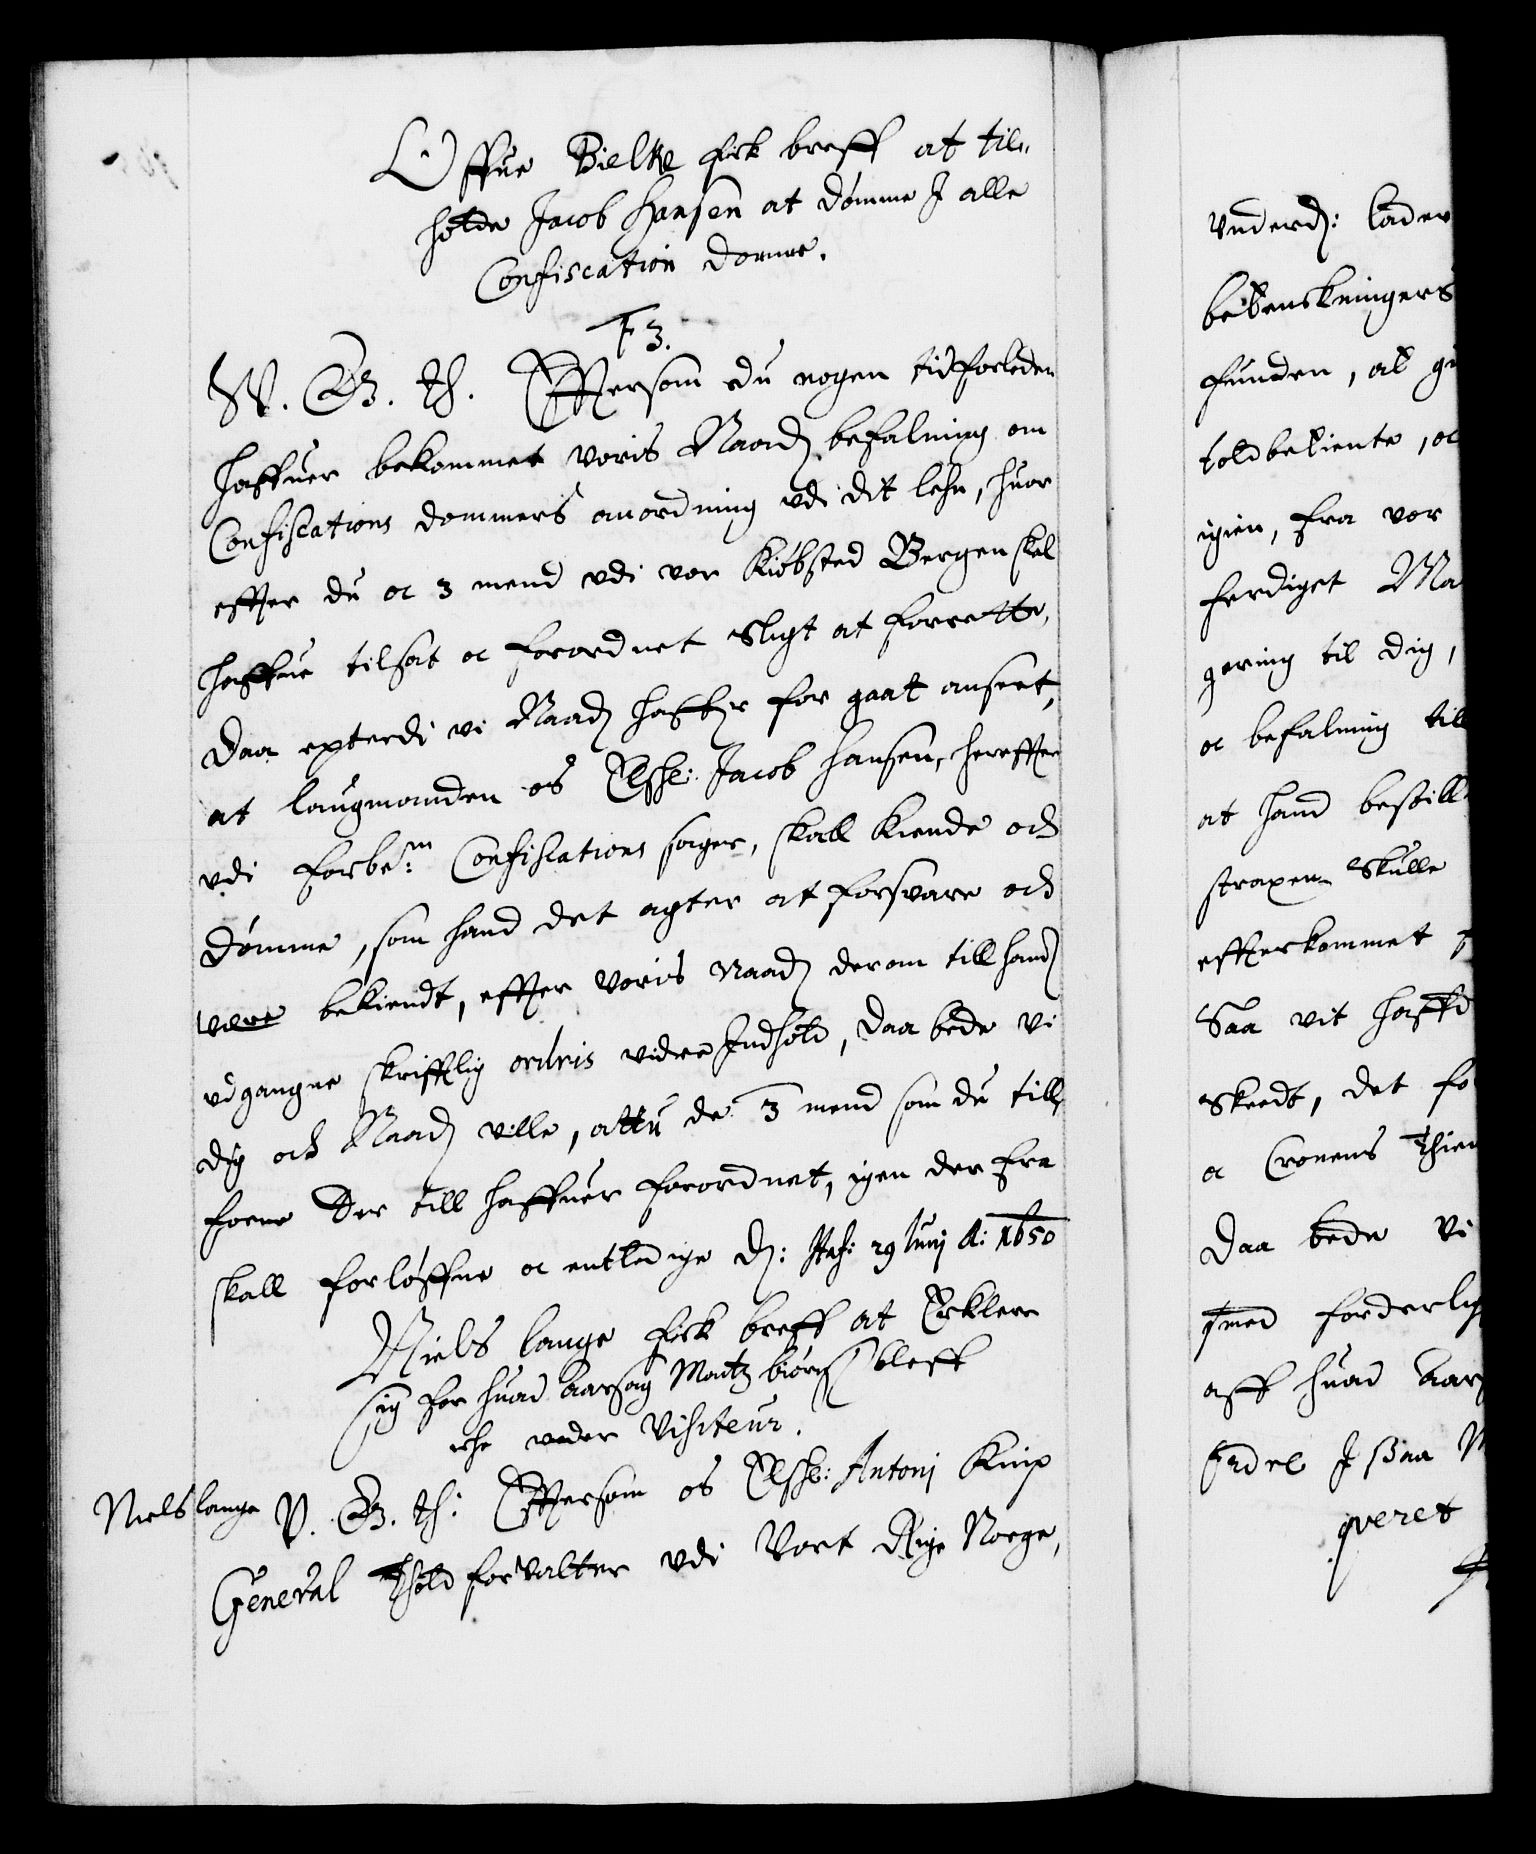 Offue Bielke fick breff at til„
holde Jacob Hansen at dømme I alle
Confiscation domme.
F 3.
W. G. th. Effttersom du nogen tid forleden
haffuer bekommet voris Naad: befalning om
Confiscations dommers anordning vdi dit lehn, huor
effter du oc 3 mend vdi vor Kiøbsted Bergen skal
haffue tilsat oc forordnet sligt at forrette,
Daa epterdi vi Naad: haffuer for gaat anseet,
at laugmanden os Elshl: Jacob Hansen, hereffter
vdi forbe:m Confiscations sager, skall kiende och
dømme, som hand det agter at forsvare och
være bekiendt, effter voris naad: derom till hand:
vdgangne skrifftlig ordris vidre Indhold, Daa bede vi
dig och Naad: ville, att du de 3 mend som du till„
forne der till haffuer forordnet, igen der fra
skall forløffue oc entledige D: Haf: 29 Iunij A: 1650
Niels lange fick breff at Erklere
sig for huad aarsag Matz biørns: bleff
iche veder Visiteur.
Niels lange
V. G. th: Effttersom os Elshl: Antonj Knip
General Thold forvalter vdi Vort Rige Norge,
vnderd: lader
funden, at gu
toldbetiente, oc
igien, fra vor
ferdiget Ma
gering til dig,
oc befalning till
at hand bestill
straxen skulle
effterkommet
Saa vit haffd
skeedt, det fo
oc Cronens Thien
Daa bede vi
forderlig
aff huad Aar
I saa M
veret